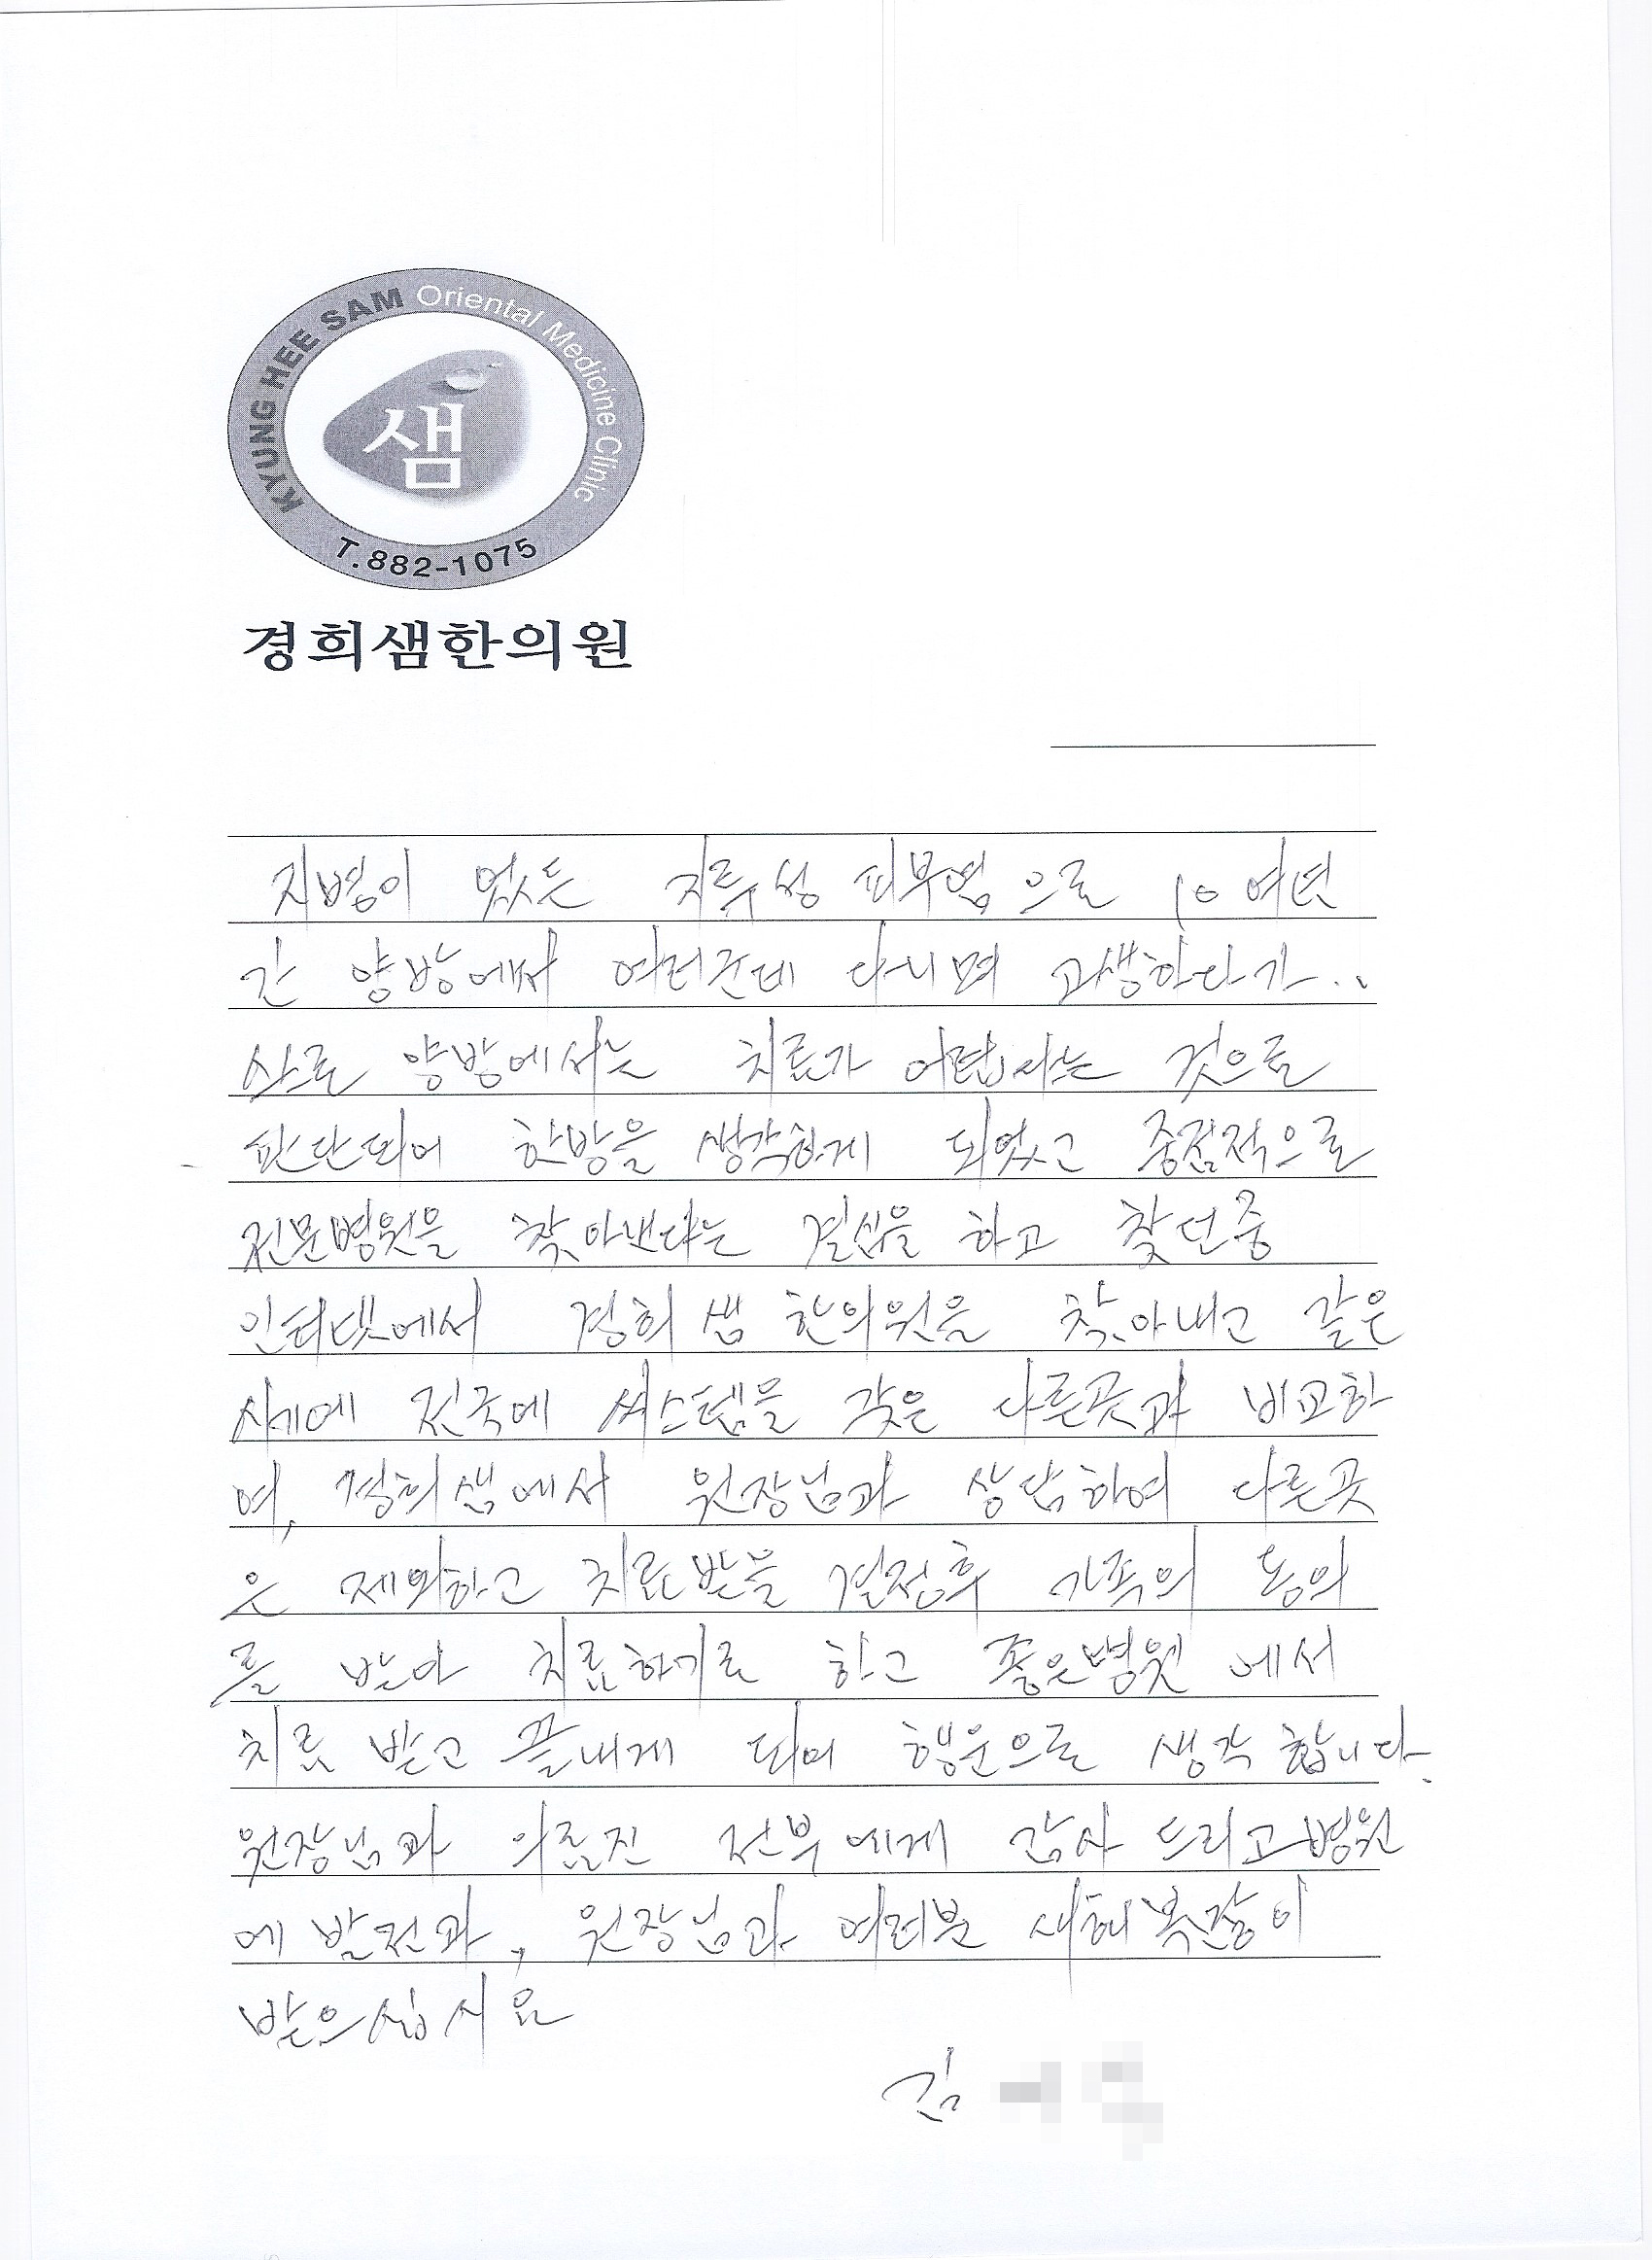 KYUNG HEE SAM Oriental Medicine Clinic
샘
T.882-1075
경희샘한의원
지병이 었든 지루성 피부염으로 10여년
간 양방에서 여러군데 다니며 고생하다가..
양방에서는 치료가 어렵다는 것으로
판단되어 한방을 생각하게 되었고 중점적으로
전문병원을 찾아낸다는 결심을 하고 찾던중
인터넷에서 경희샘 한의원을 찾아내고 같은
시기에 전국에 씨스템을 갖은 다른곳과 비교하
여, 경희샘에서 원장님과 상담하여 다른곳
은 제외하고 치료받을 결정후 가족의 동의
를 받아 치료하기로 하고 좋은병원에서
치료 받고 끝내게 되어 행운으로 생각 합니다.
원장님과 의료진 전부에게 감사 드리고 병원
에 발전과, 원장님과 여러분 새해복많이
받으십시요
김